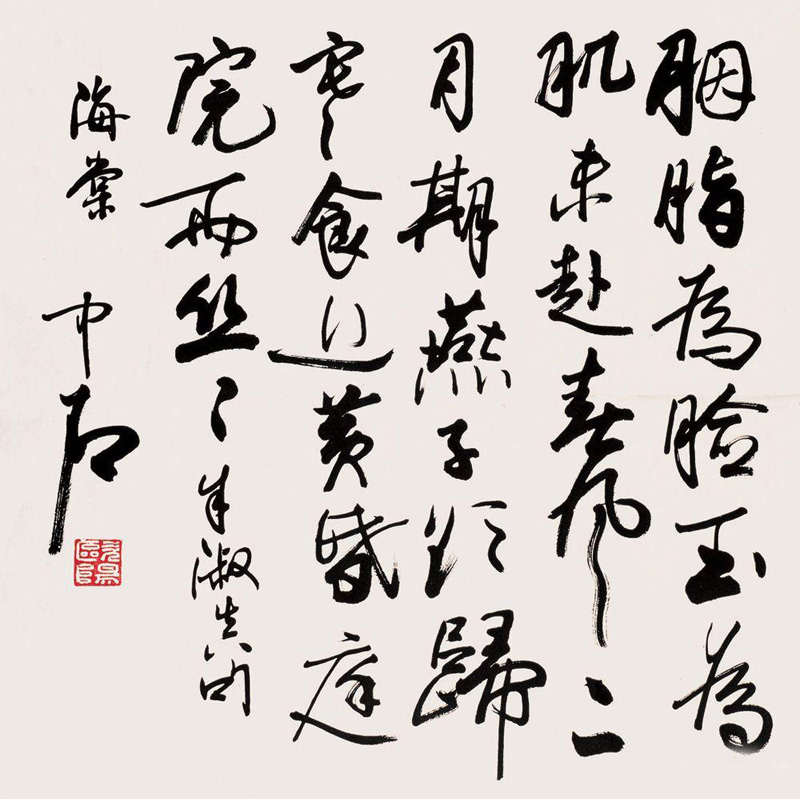 胭脂為臉玉為
肌未赴春風二
月期燕子欲歸
寒食近黄昏庭
院雨丝〻朱淑真
海棠 中石